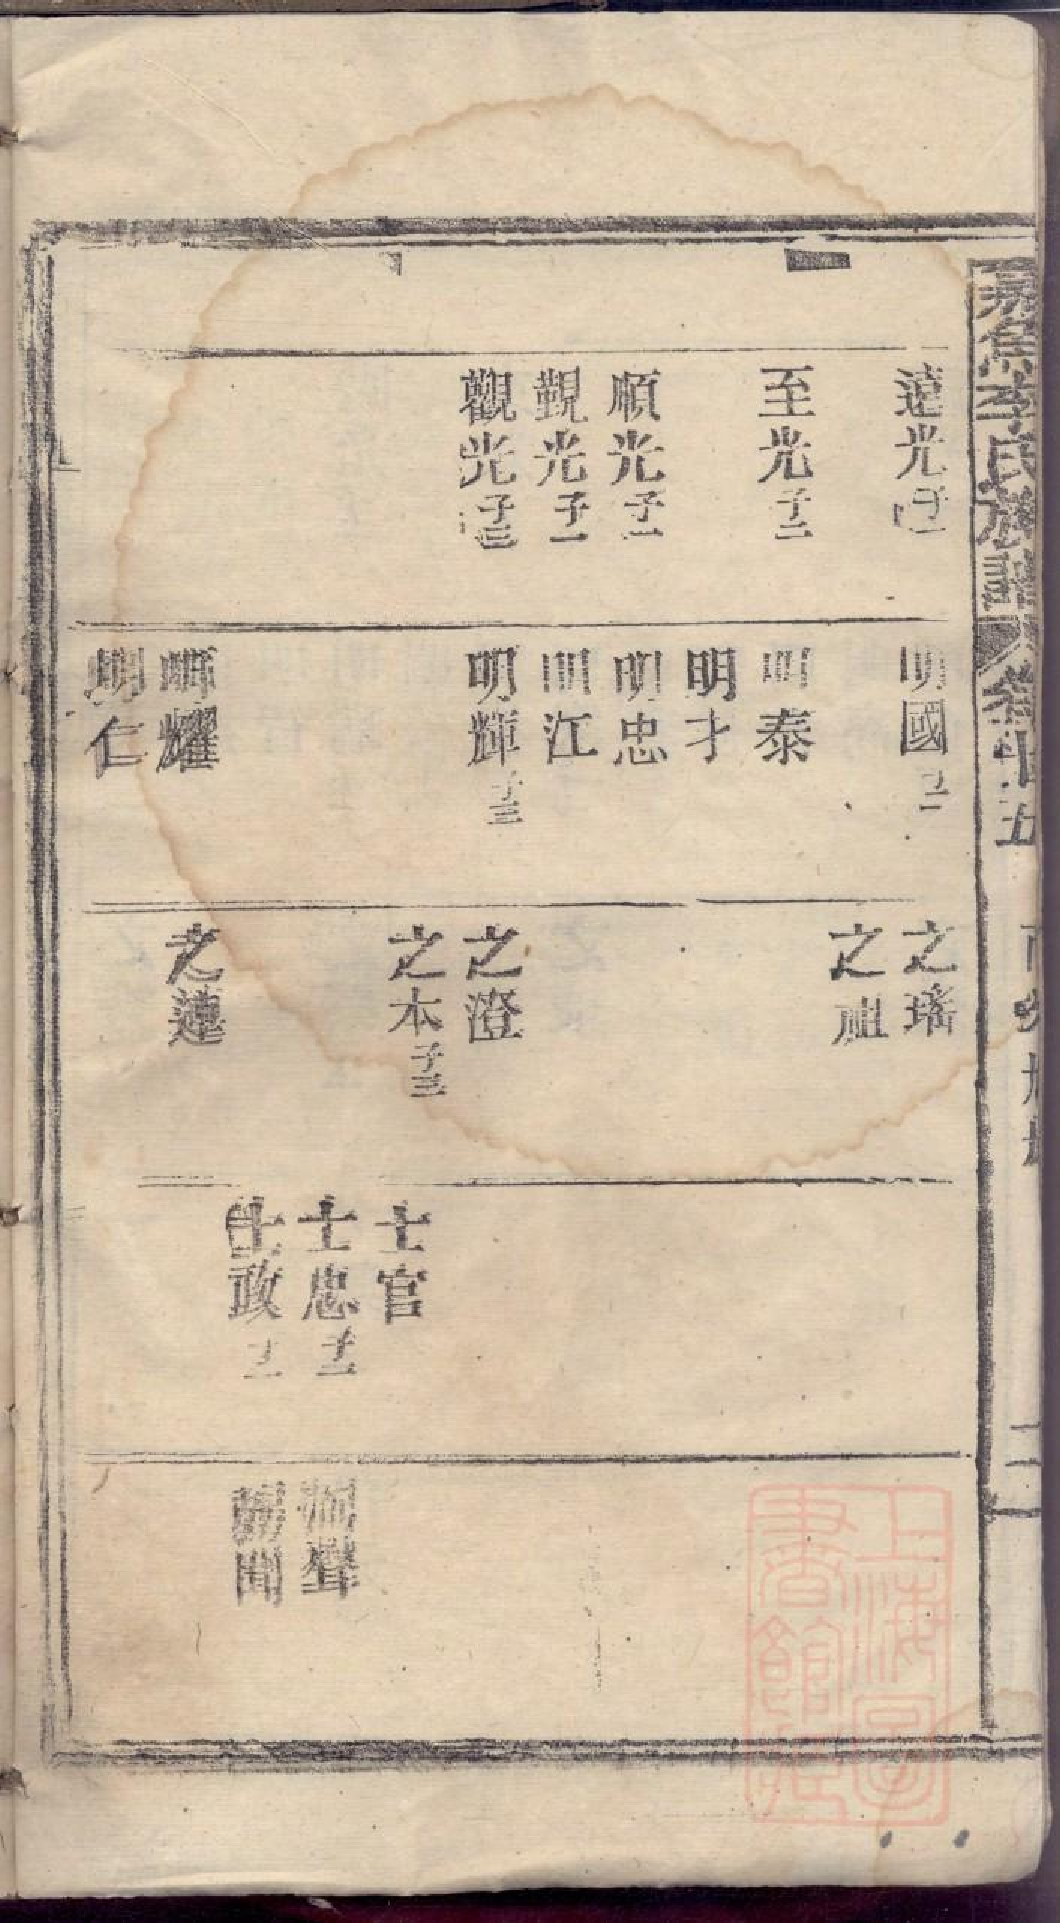 李氏族譜 卷廿五
遠光子一
至光子二
順光子一
觀光子一
觀光子三
明國子二
明泰
明才
明忠
明江
明輝子三
明耀
明仁
之瑤
之祖
之澄
之本子三
之蓮
士官
士忠子一
士政子一
聞
上海圖書館藏